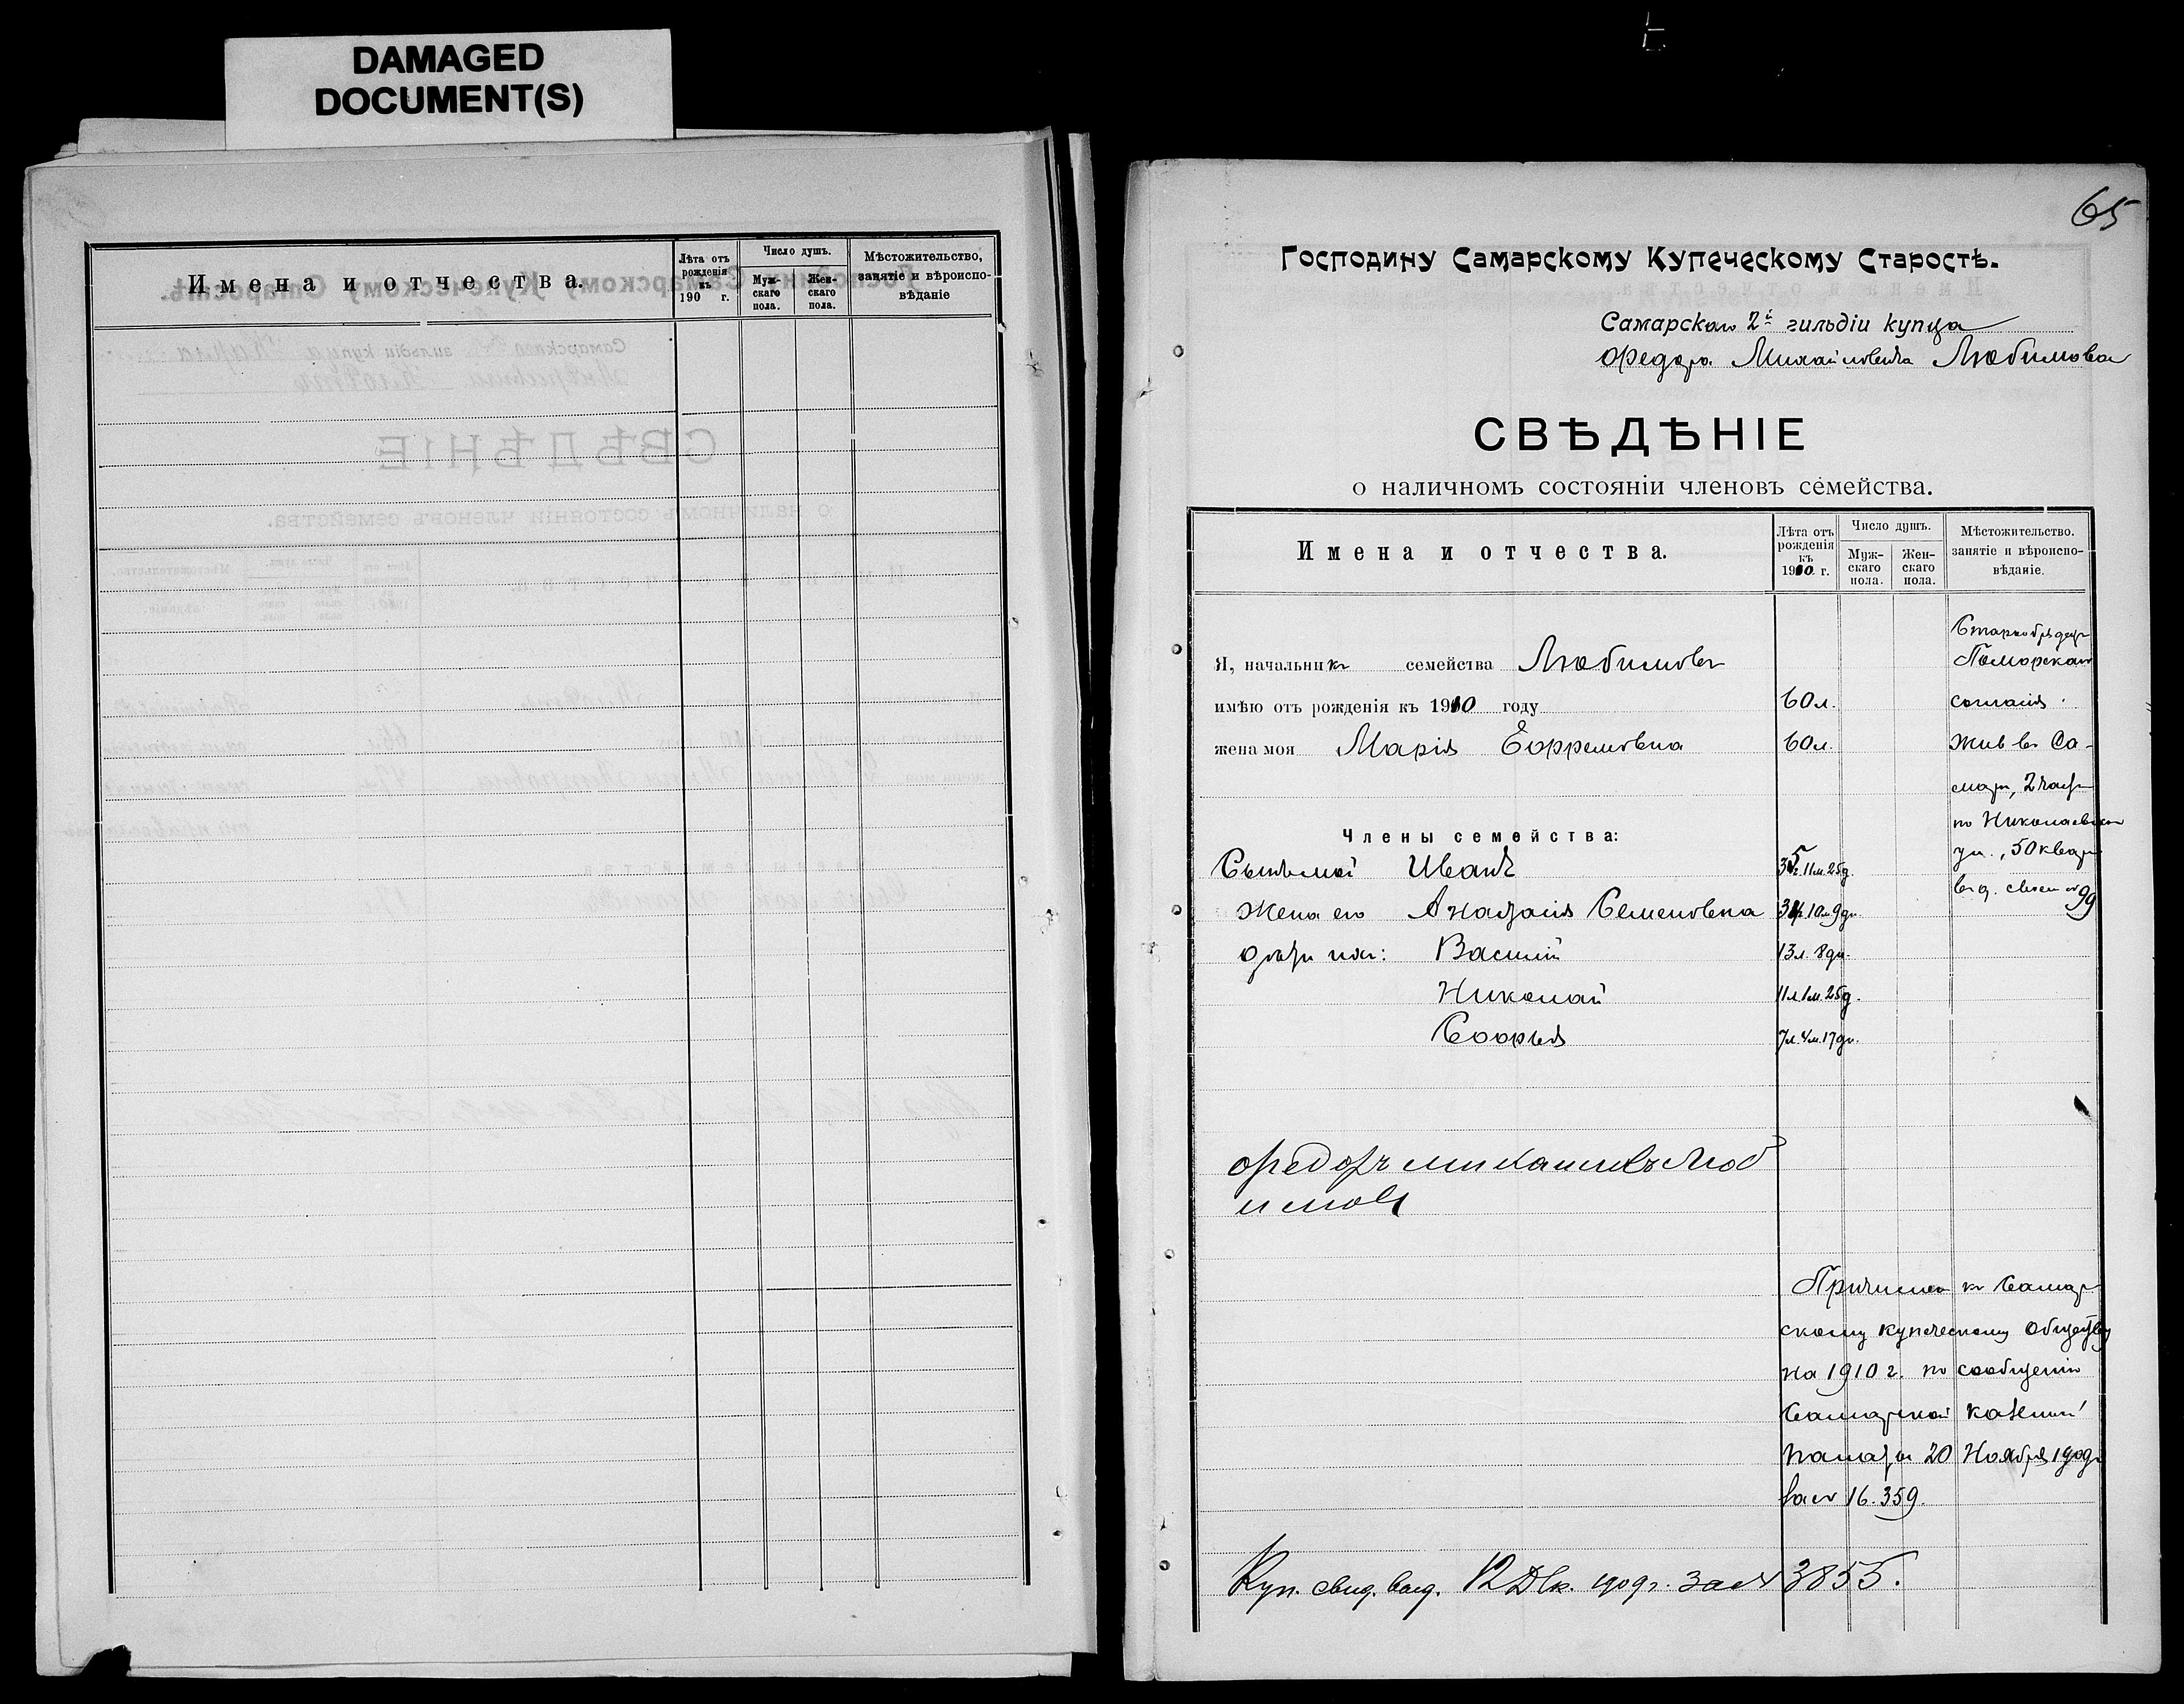 DAMAGED
DOCUMENT(S)
Имена и отчества.
Лѣта отъ рожденія къ 190 г.
Число душъ.
Муж-скаго пола.
Жен-скаго пола.
Мѣстожительство, занятіе и вѣроиспо-вѣданіе
65
Господину Самарскому Купеческому Старостѣ.
Самарскаго 2й гильдіи купца
Федора Михайловича Любимова
СВѢДѢНІЕ
о наличномъ состояніи членовъ семейства.
Имена и отчества.
Лѣта отъ рожденія къ 1910 г.
Число душъ.
Муж-скаго пола.
Жен-скаго пола.
Мѣстожительство. занятіе и вѣроиспо-вѣданіе.
Я, начальникъ семейства Любимовъ
имѣю отъ рожденія къ 1910 году 60 л.
жена моя Марія Ефремовна 60 л.
Старообрядецъ
Поморскаго
согласія.
Жив въ Са-
мар, 2 част
по Николаевской
ул., 50 кварт
в д. своем № 99
Члены семейства:
Сынъ мой Иванъ 35 г. 11 м. 25 д.
Жена его Анастасія Семеновна 10 м 9 дн.
Дѣти ихъ: Василій 13 л. 8 дн.
Николай 11 л 1 м. 25 д.
Софья 7 л. 4 м. 17 дн.
Федоръ михаиловъ Люб
имовъ
Причислен к Самар
скому купеческому Обществу
на 1910 г. по сообщенію
Самарской Казенной
Палаты 20 Ноября 1909 г
за № 16.359.
Куп. свид. выд. 12 Дек. 1909 г. за № 3855.